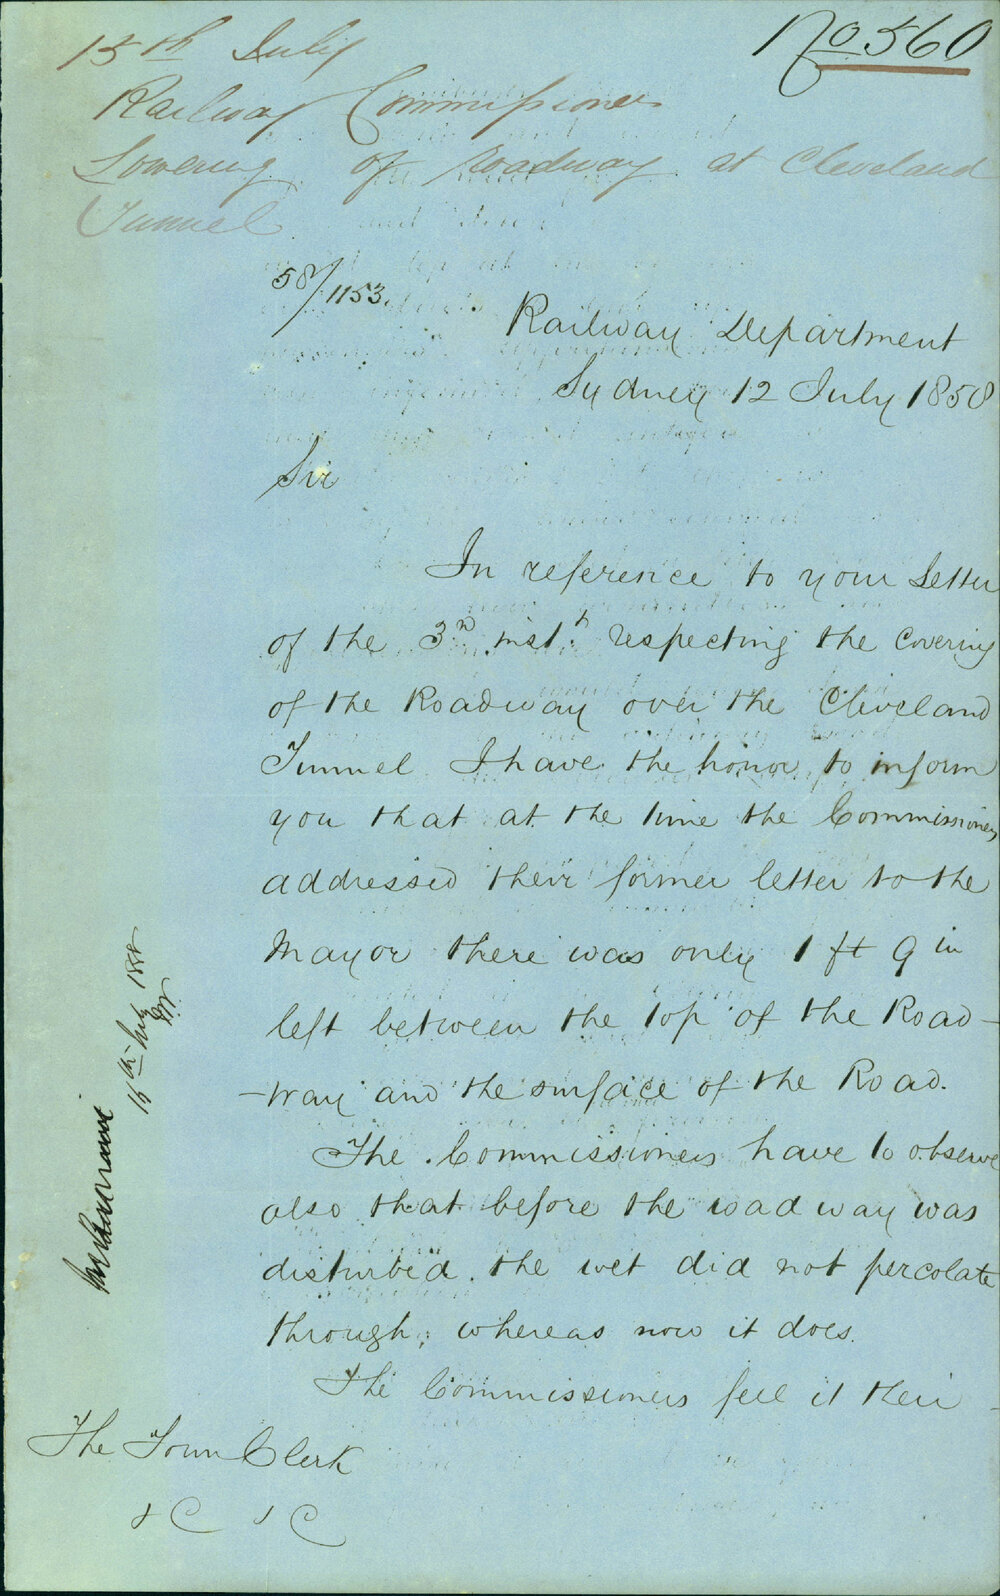 No 560
15th July
Railway Commissioners
Lowering of roadway at Cleveland
Tunnel
58/1153.
Railway Department
Sydney 12 July 1858
Sir
In reference to your Letter
of the 3rd inst. respecting the covering
of the Roadway over the Cleveland
Tunnel I have the honor to inform
you that at the time the Commissioners
addressed their former letter to the
Mayor there was only 1 ft 9 in
left between the top of the Road-
-way and the surface of the Road.
The Commissioners have to observe
also that before the roadway was
disturbed the wet did not percolate
through, whereas now it does.
The Commissioners feel it their
The Town Clerk
&C &C
15th July 1858